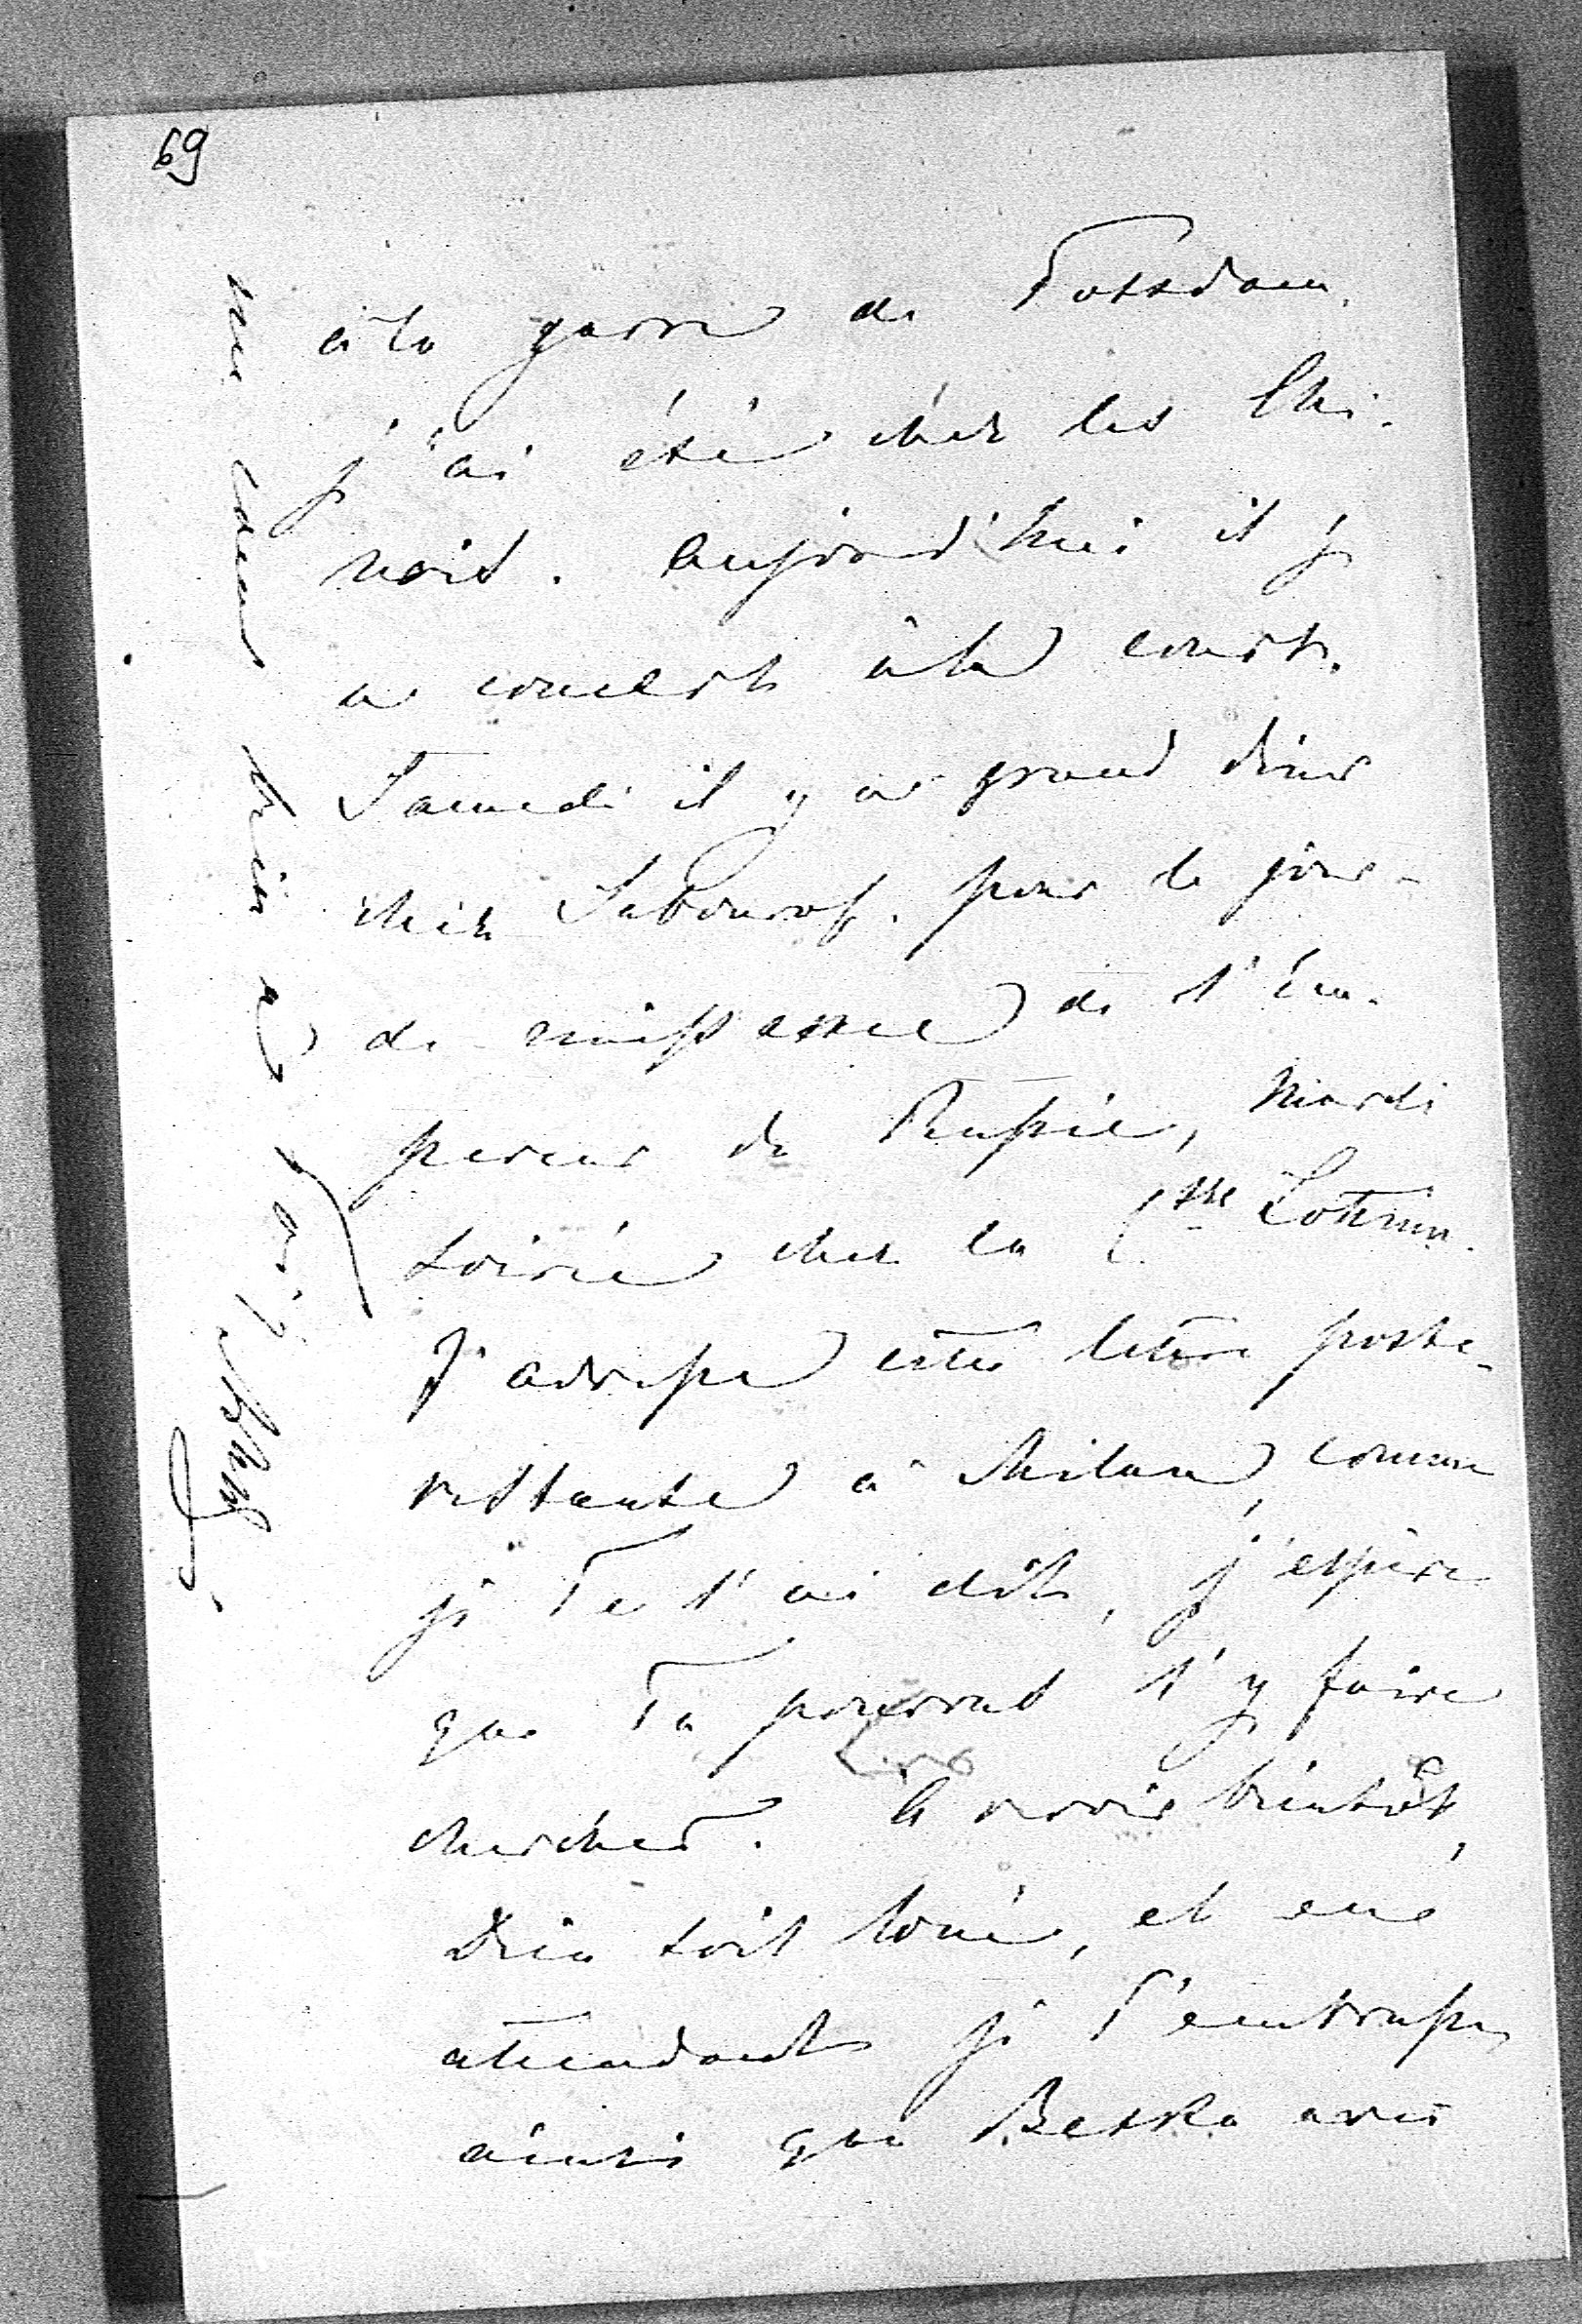 69
à la garre de Potsdam.
j'ai été chez les Chi-
nois. aujourd'hui il y
a concert à la court.
Samedi il y a grand diner
chez Sabourof. pour le jour
de naissance de l'Em-
pereur de Russie, Mardi
soirée chez la Csse
J'adresse cette lettre poste-
restante à Milan, comme
je Te l'ai dit, j'espère
que Tu pourras l'y faire
chercher. A revoir bientôt,
Dieu soit loué, et en
attendant je T'embrasse
ainsi que Betka avec